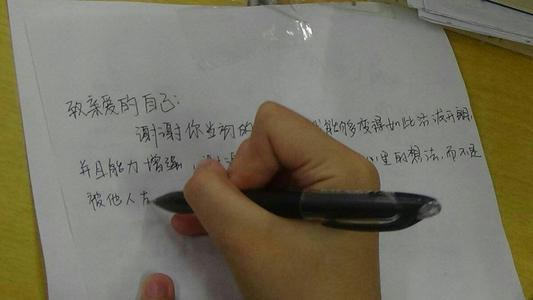 致亲爱的自己:
谢谢你当初的 能够变得如此活泼开朗,
并且能力增强, 心里的想法,而不是
被他人左